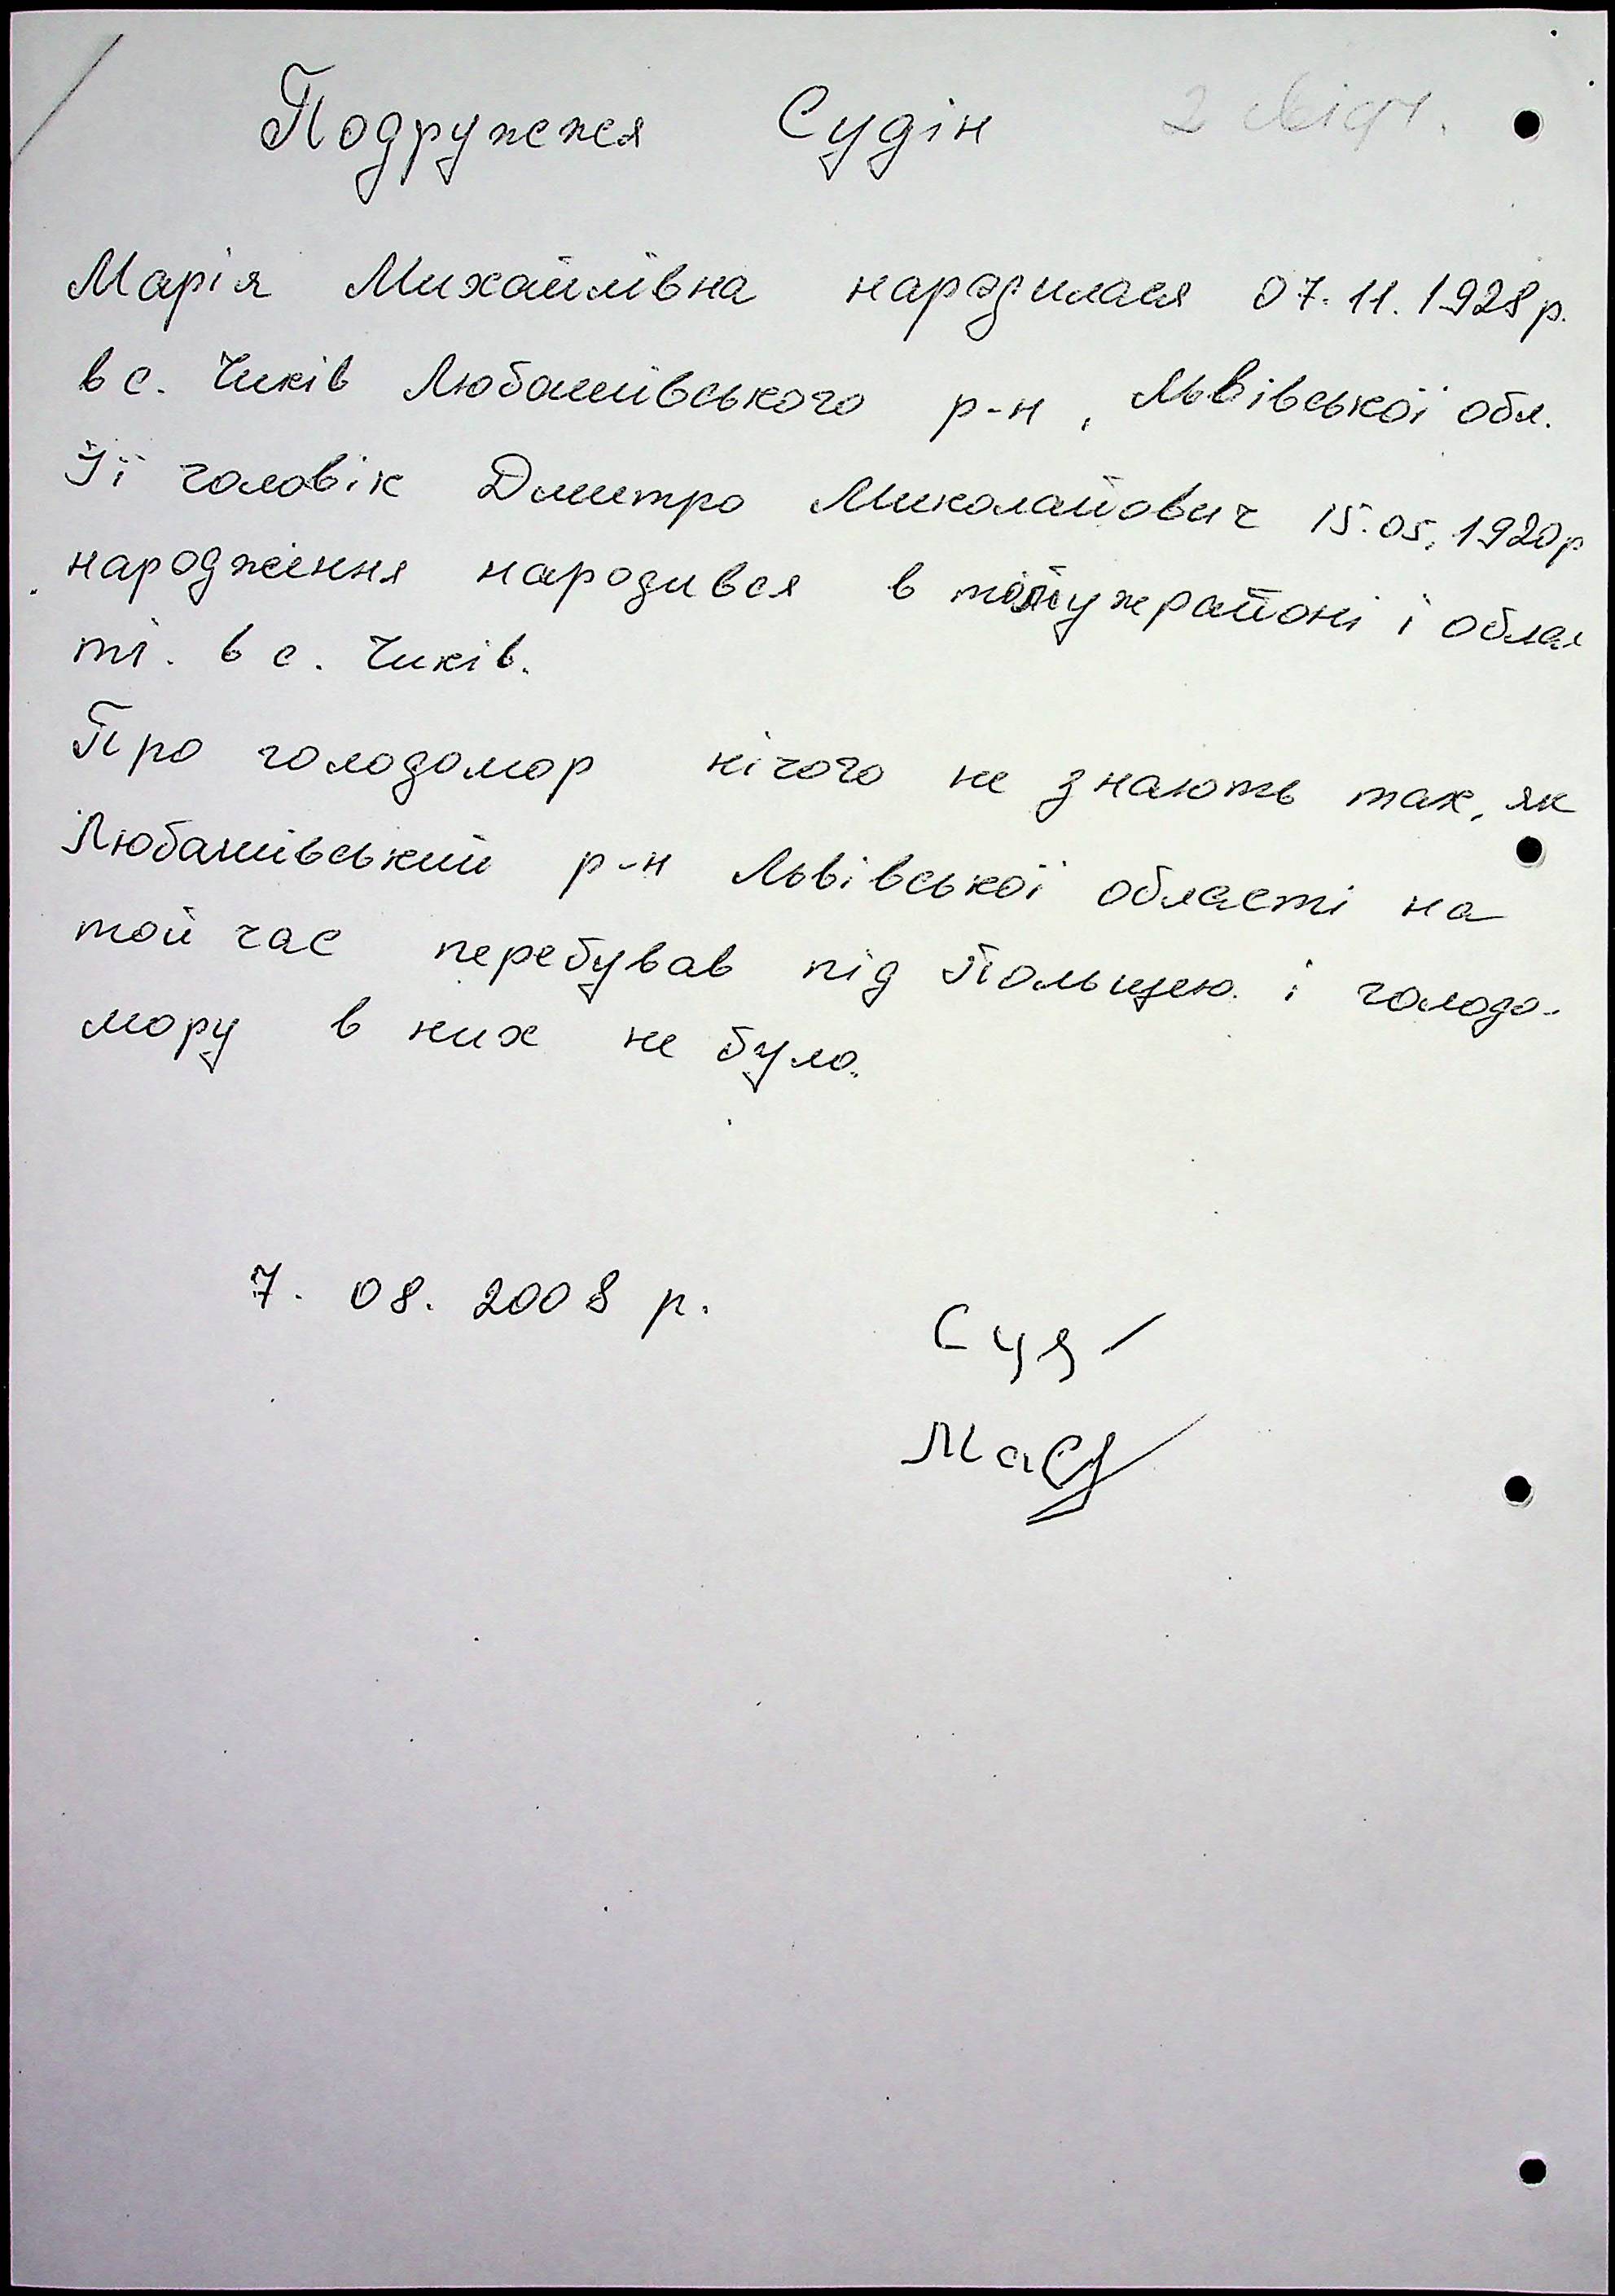 Подружжя Судін
Марія Михайлівна народилася 07.11.1928р.
в с. Чиків Любашівського р-н, Львівської обл.
Її чоловік Дмитро Миколайович 15.05.1920р
народження народився в тому ж районі і облас
ті. в с. Чиків.
Про голодомор нічого не знають так, як
Любашівський р-н Львівської області на
той час перебував під Польщею і голодо-
мору в них не було.
7. 08. 2008 р.
Суд